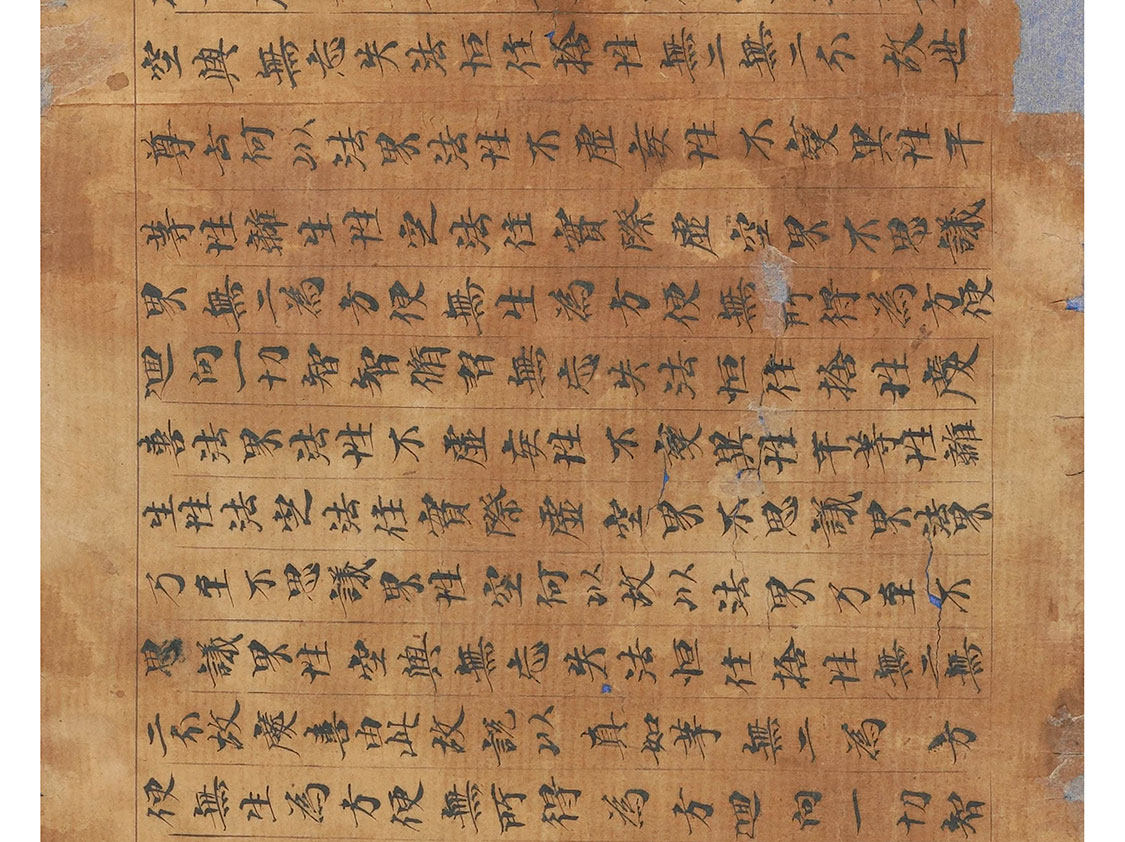 空與無忘失法恒住捨性無二無二分故世
尊云何以法界法性不虛妄性不變異性平
等性離生性定法住實際虛空界不思議
界無二為方便無生為方便無所得為方便
迴向一切智智脩習無忘失法恒住捨性慶
喜法界法性不虛妄性不變異性平等性離
生性法定法住實際虛空界不思議界法界
乃至不思議界性空何以故以法界乃至不
思議界性空與無忘失法恒住捨性無二無
二分故慶喜由此故說以真如等無二為方
便無生為方便無所得為方迴向一切智